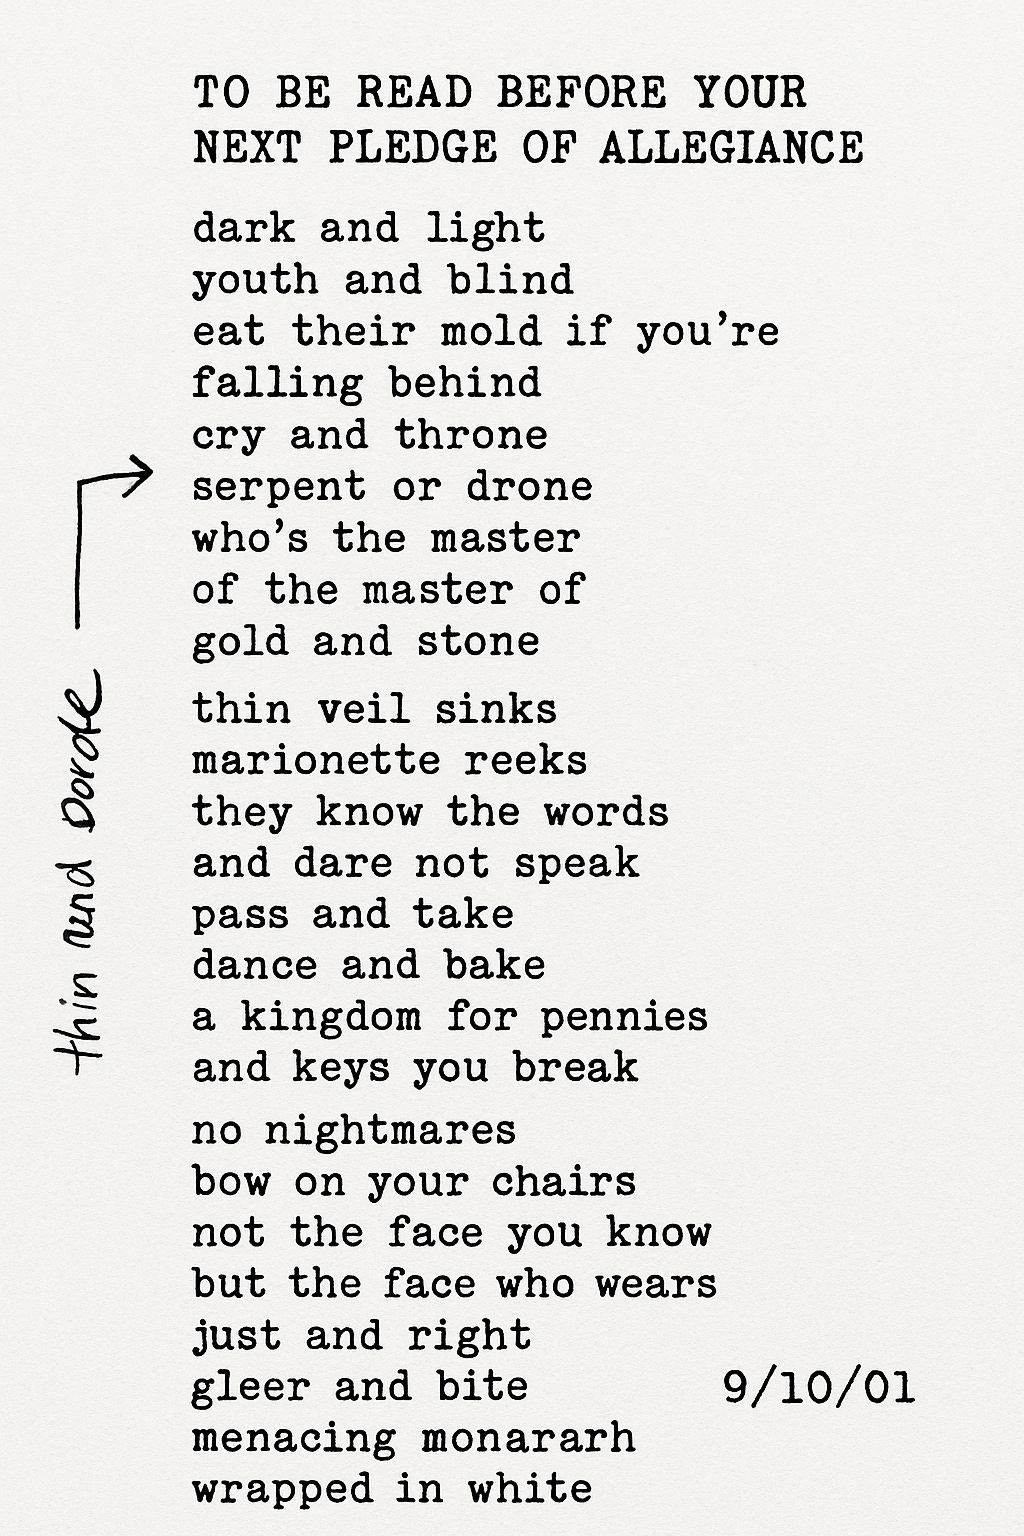 TO BE READ BEFORE YOUR
NEXT PLEDGE OF ALLEGIANCE
dark and light
youth and blind
eat their mold if you're
falling behind
cry and throne
serpent or drone
who's the master
of the master of
gold and stone
thin veil sinks
marionette reeks
they know the words
and dare not speak
pass and take
dance and bake
a kingdom for pennies
and keys you break
no nightmares
bow on your chairs
not the face you know
but the face who wears
just and right
gleer and bite
9/10/01
menacing monararh
wrapped in white
thin